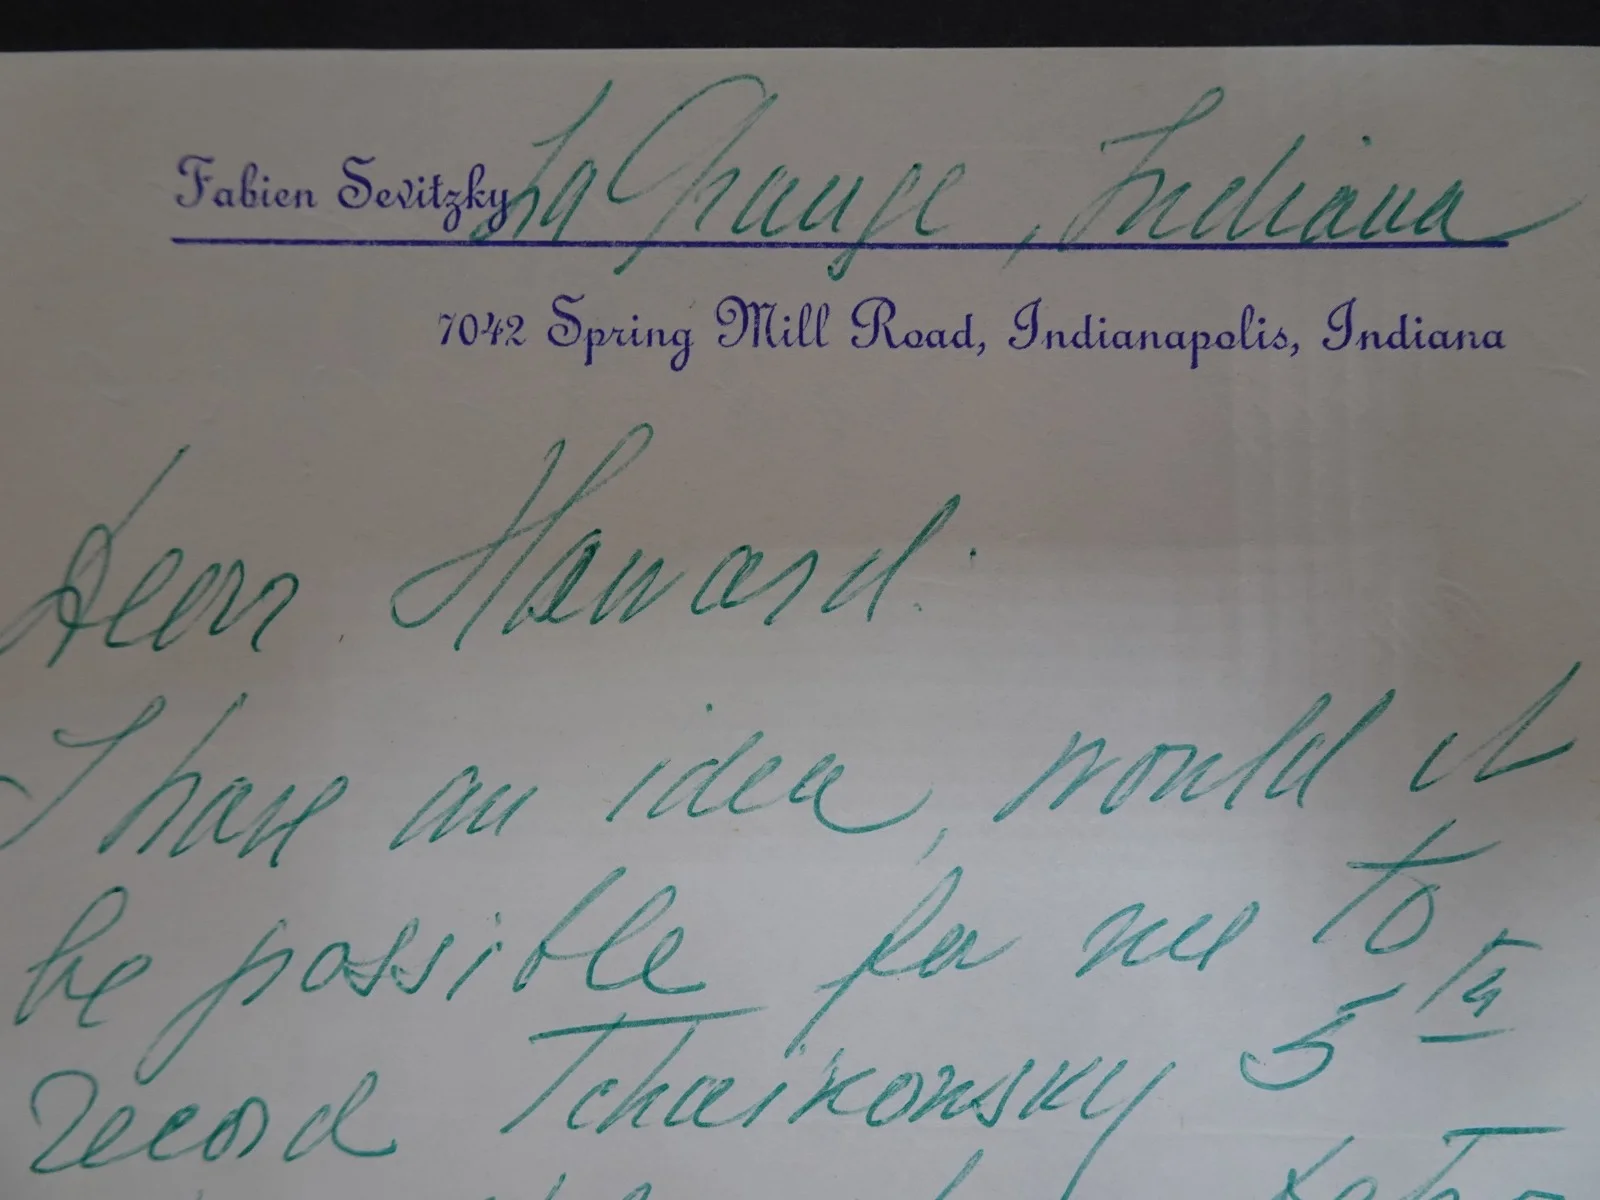 Fabien Sevitzky La Grange, Indiana
7042 Spring Mill Road, Indianapolis, Indiana
Dear Howard:
I have an idea, would it
be possible for me to
record Tchaikowsky 5th